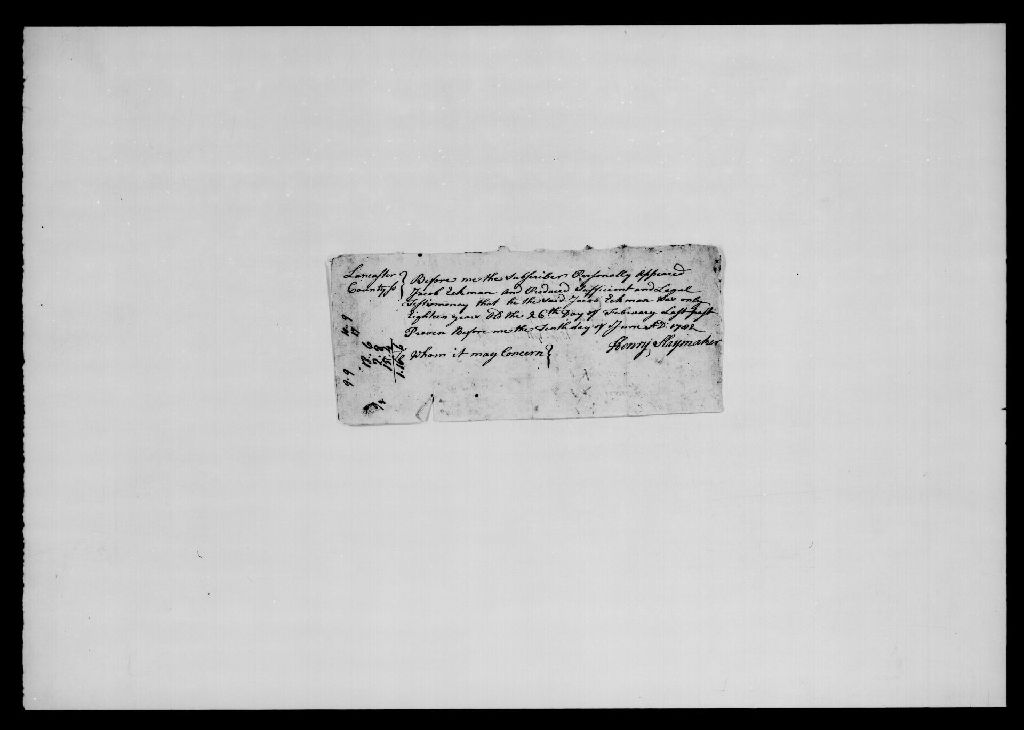 Lancaster
County ss
Before me the Subscriber Personally Appeared
Jacob Eckman and Produced Sufficient and Legal
Testimoney that he the said Jacob Eckman was only
Eighteen years Old the 26th Day of February Last past
Proven Before me the Tenth day of June A.D. 1782
Henry Slaymaker
Whom it may Concern